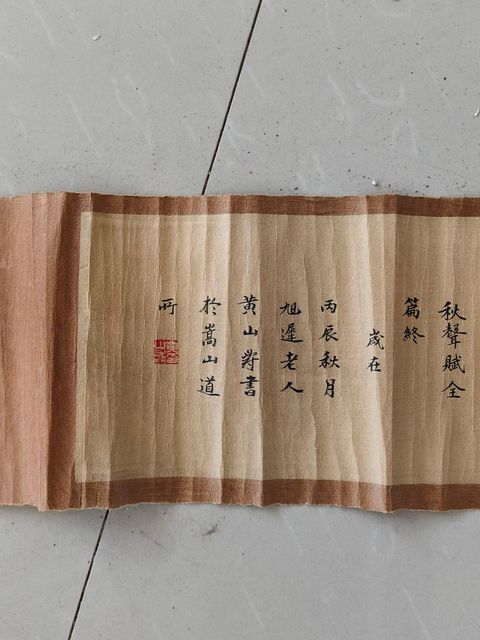 秋聲賦全
篇終
歲在
丙辰秋月
旭遲老人
黃山書
於嵩山道
所